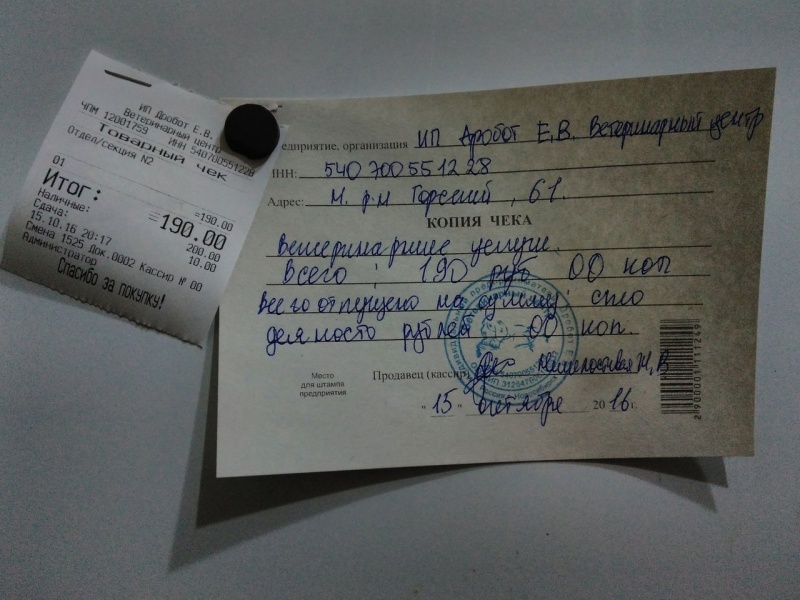 ИП Дробот Е.В.
Ветеринарный центр
ЧПМ 12001759 ИНН 540700551228
Товарный чек
Отдел/секция N2
01 =190.00
Итог: =190.00
Наличные: 200.00
Сдача: 10.00
15.10.16 20:17
Смена 1525 Док.0002 Кассир № 00
Администратор
Спасибо за покупку!
едприятие, организация ИП Дробот Е.В. Ветеринарный центр
ИНН: 540700551228
Адрес: м. р-н Горский, 61.
КОПИЯ ЧЕКА
Ветеринарные услуги.
Всего : 190 руб 00 коп
Всего отпущено на сумму: сто
девяносто рублей 00 коп.
Место
для штампа
предприятия
Продавец (кассир)
"15" октября 2016г.
2900001117249